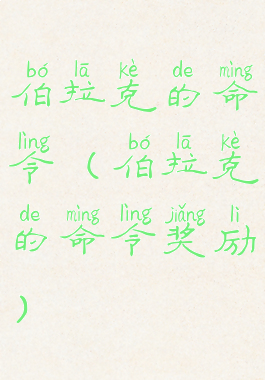 bó lā kè de mìng
伯拉克的命
lìng bó lā kè
令（伯拉克
de mìng lìng jiǎng lì
的命令奖励
）